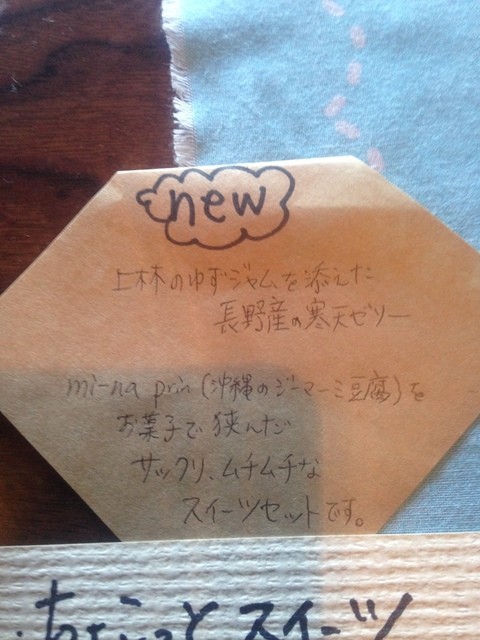 new
上林のゆずジャムを添えた
長野産の寒天ゼリー
mi-na prin (沖縄のジーマーミ豆腐)を
お菓子で挟んだ
サックリ、ムチムチな
スイーツセットです。
ちょこっとスイーツ